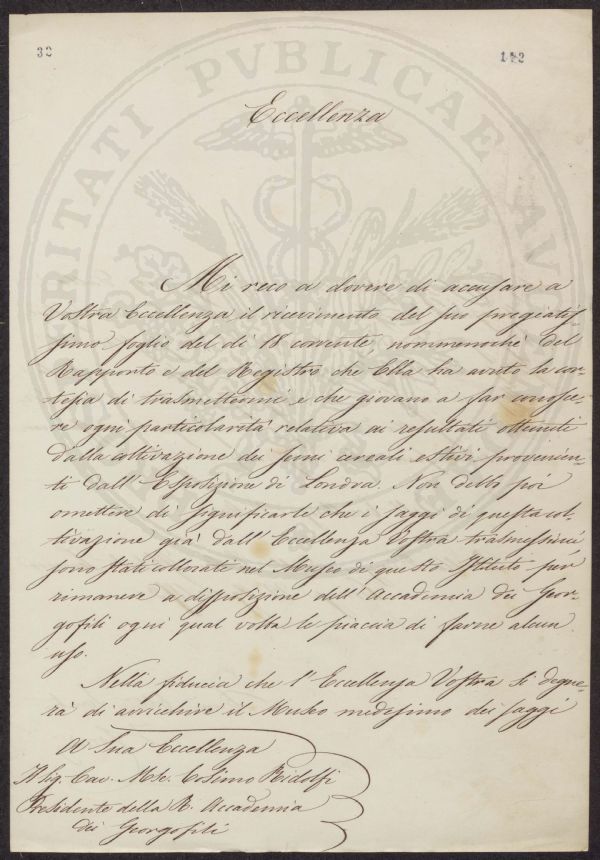 32
142
PROSPERITATI PVBLICAE AVGENDAE
Eccellenza
Mi reco a dovere di accusare a
Vostra Eccellenza il ricevimento del suo pregiatis-
simo foglio del dì 18 corrente, nommenoché del
Rapporto e del Registro che Ella ha avuto la cor-
tesia di trasmettermi, e che giovano a far conosce-
re ogni particolarità relativa ai resultati ottenuti
dalla coltivazione dei semi cereali estivi provenien-
ti dall'Esposizione di Londra. Non debbo poi
omettere di significarle che i saggi di questa col-
tivazione già dall'Eccellenza Vostra trasmessimi
sono stati collocati nel Museo di questo Istituto per
rimanere a disposizione dell'Accademia dei Geor-
gofili ogni qual volta le piaccia di farne alcun
uso.
Nella fiducia che l'Eccellenza Vostra si degne-
rà di arricchire il Museo medesimo dei saggi
A Sua Eccellenza
Il Sig. Cav. Mse. Cosimo Ridolfi
Presidente della R. Accademia
dei Georgofili